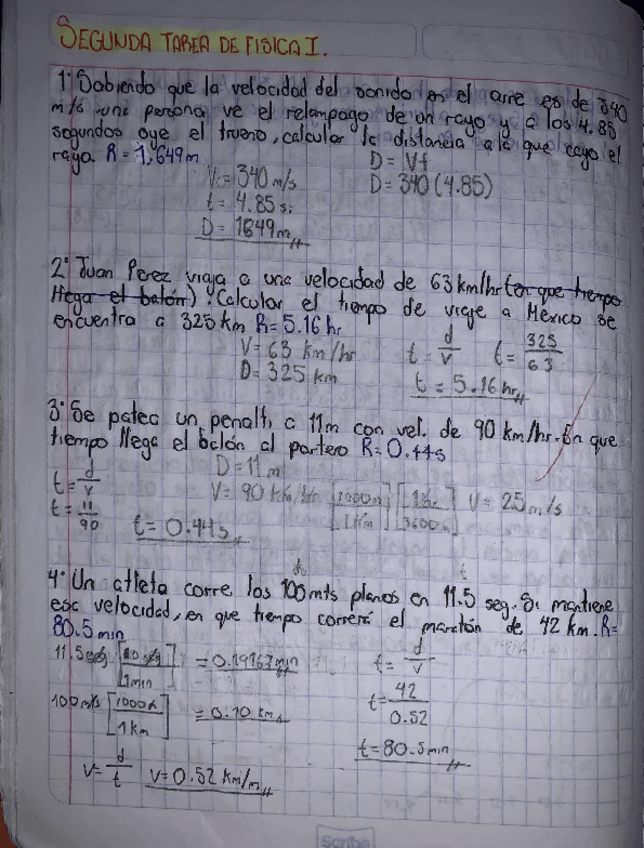 SEGUNDA TAREA DE FISICA I.
1° Sabiendo que la velocidad del sonido en el aire es de 340
m/s una persona ve el relampago de un rayo y a los 4.85
segundos oye el trueno, calcular la distancia a la que cayo el
rayo R=1,649m
V=340 m/s
t=4.85 s.
D=1649m
D=Vt
D=340(4.85)
2° Juan Perez viaja a una velocidad de 63 km/hr (en que tiempo
llega el balón) Calcular el tiempo de viaje a México se
encuentra a 325 km R=5.16 hr
V=63 km/hr
D=325 km
t=d/v t=325/63
t=5.16 hr
3° Se patea un penalti a 11m con vel. de 90 km/hr. En que
tiempo llega el balón al portero R=0.44s
t=d/v
t=11/90
t=0.44s
D=11m
V=90 km/hr [1000m/1km] [1hr/3600s] V=25m/s
4° Un atleta corre los 100 mts planos en 11.5 seg. Si mantiene
esa velocidad, en que tiempo correrá el maratón de 42 km. R=
80.5 min
11.5 seg [60 seg/1min] =0.19167min
100 mts [1000m/1km] =0.10 km
V=d/t V=0.52 km/m
t=d/v
t=42/0.52
t=80.5min
Scribe